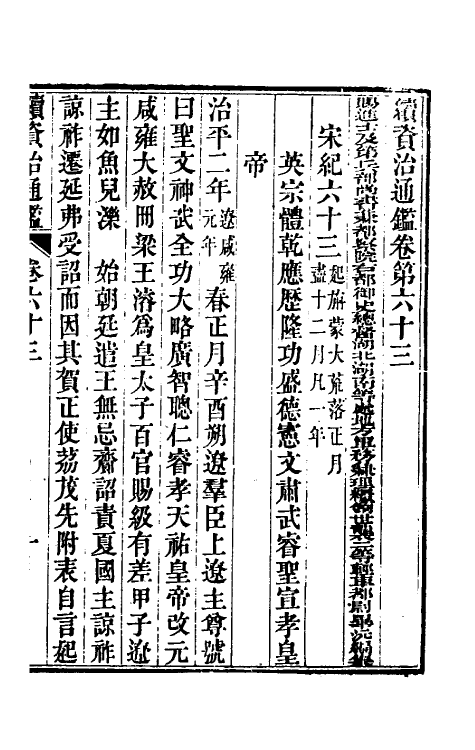 續資治通鑑卷第六十三
賜進士及第兵部尚書兼都察院右都御史總督湖北湖南等處地方軍務兼理糧餉世襲二等輕車都尉畢沅編集
宋紀六十三 起旃蒙大荒落正月盡十二月凡一年
英宗體乾應歷隆功盛德憲文肅武睿聖宣孝皇
帝
治平二年遼咸雍元年春正月辛酉朔遼羣臣上遼主尊號
曰聖文神武全功大略廣智聰仁睿孝天祐皇帝改元
咸雍大赦冊梁王濬爲皇太子百官賜級有差甲子遼
主如魚兒濼 始朝廷遣王無忌齎詔責夏國主諒祚
諒祚遷延弗受詔而因其賀正使荔茂先附表自言起
續資治通鑑 卷六十三 一